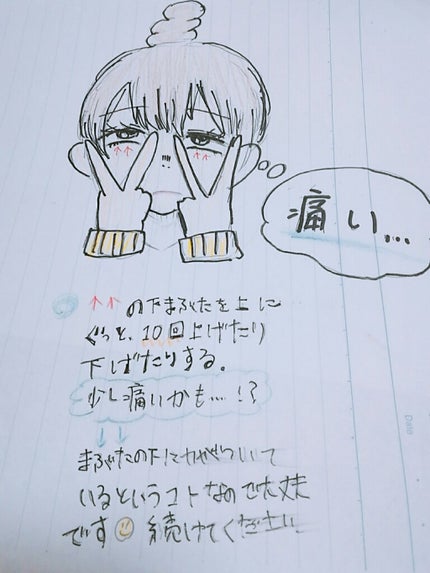 痛い…
↑↑の下まぶたを上に
ぐっと、10回上げたり
下げたりする。
少し痛いかも…!?
↓↓
まぶたの下に力がついて
いるというコトなので大丈夫
です 続けてください
Date